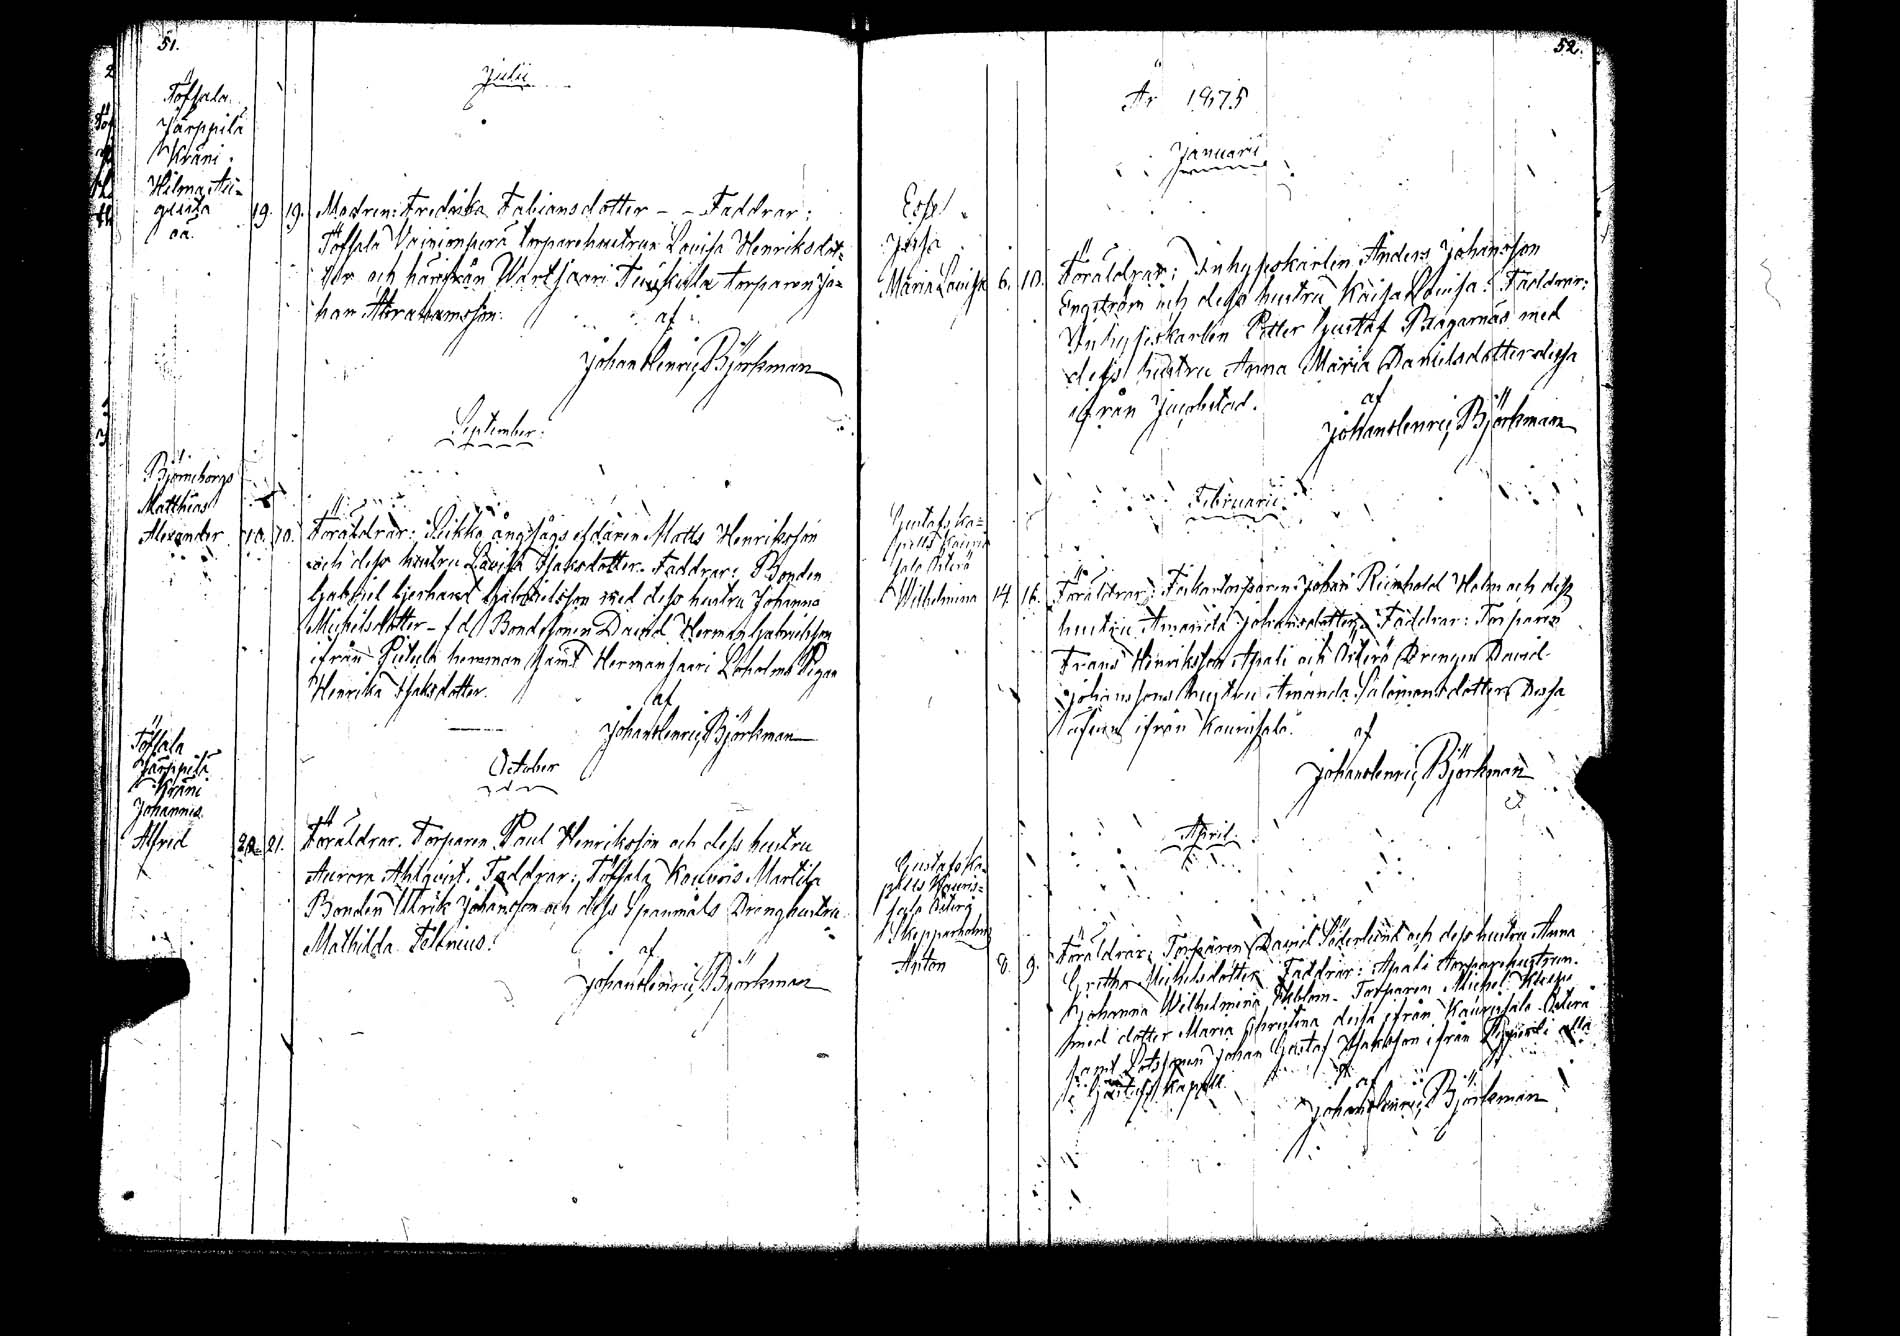 51.
Julii
Töfsala
Järppilä
Kräni
Hilma Au=
gusta
oä.
19. 19.
Modren: Fredrika Fabiansdotter - - Faddrar:
Töfsala Vainionperä torparehustrun Lovisa Henriksdot=
ter och härifrån Wartsaari torparen Jo=
han Abrahamsson.
af
Johan Henric Björkman
September.
Björneborgs
Matthias
Alexander
10. 10.
Föräldrar: ångsågs Matts Henriksson
och dess hustru Lovisa Isaksdotter. Faddrar: Bonden
Gabriel Gerhard Gabrielsson med dess hustru Johanna
Michelsdotter - f d Bondesonen David Herman Gabrielsson
ifrån hemman samt Hermansaari Loholma Pigan
Henrika Isaksdotter.
af
Johan Henric Björkman
October
Töfsala
Järppilä
Kräni
Johannes
Alfred
20. 21.
Föräldrar. Torparen Paul Henriksson och dess hustru
Aurora Ahlqvist. Faddrar: Töfsala Kouvois Marttila
Bonden Ulrik Johansson och dess Spanmåls Dränghustru
Mathilda
af
Johan Henric Björkman
52.
År 1875
Januarii
Esse
Maria Lovisa
6. 10.
Föräldrar: Inhyseskarlen Anders Johansson
Engström och dess hustru Kaisa Lovisa. Faddrar:
Inhyseskarlen Petter Gustaf med
dess hustru Anna Maria Danielsdotter dessa
ifrån Jacobstad.
af
Johan Henric Björkman
Februarii
Gustafs ka=
pells Kauris
sala Österö
Wilhelmina
14. 16.
Föräldrar: Johan Reinhold Holm och dess
hustru Amanda Johansdotter Faddrar: Torparen
Frans Henriksson Apali och Österö Drengen David
Johanssons hustru Amanda Salomonsdotter Dessa
äfven ifrån Kaurissala.
af
Johan Henric Björkman
April.
Gustafs Ka=
pells Kauris=
sala Österö
Skepparholm
Anton
8. 9.
Föräldrar: Torparen David Söderlund och dess hustru Anna
Gretha Michelsdotter Faddrar: Apali torparehustrun
Johanna Wilhelmina Ekblom. Torparen Michel
med dotter Maria Christina dessa ifrån Kaurissala Österö
samt Lotssonen Johan Gustaf Isaksson ifrån alla
i Gustafs Kapell
af
Johan Henric Björkman